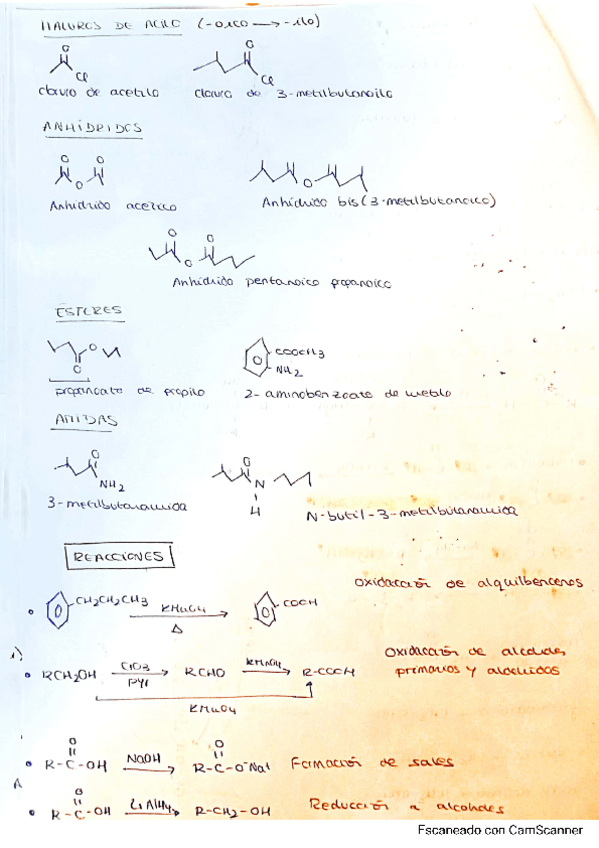 HALUROS DE ACILO (-oico → -ilo)
O
Cl
O
Cl
cloruro de acetilo
cloruro de 3-metilbutanoilo
ANHIDRIDOS
O O
O
O
Anhidrido acético
Anhidrido bis(3-metilbutanoico)
O O
O
Anhidrido pentanoico propanoico
ESTERES
O
O
COOCH3
NH2
propanoato de propilo
2-aminobenzoato de metilo
AMIDAS
O
NH2
O
N
H
3-metilbutanamida
N-butil-3-metilbutanamida
REACCIONES
Oxidación de alquilbencenos
CH2CH2CH3 KMnO4 → COOH
Δ
1)
Oxidación de alcoholes
primarios y aldehidos
• RCH2OH CrO3 → RCHO KMnO4 → R-COOH
Pyr
KMnO4
O O
• R-C-OH NaOH → R-C-O⁻Na⁺ Formación de sales
O
• R-C-OH LiAlH4 → R-CH2-OH Reducción a alcoholes
Escaneado con CamScanner